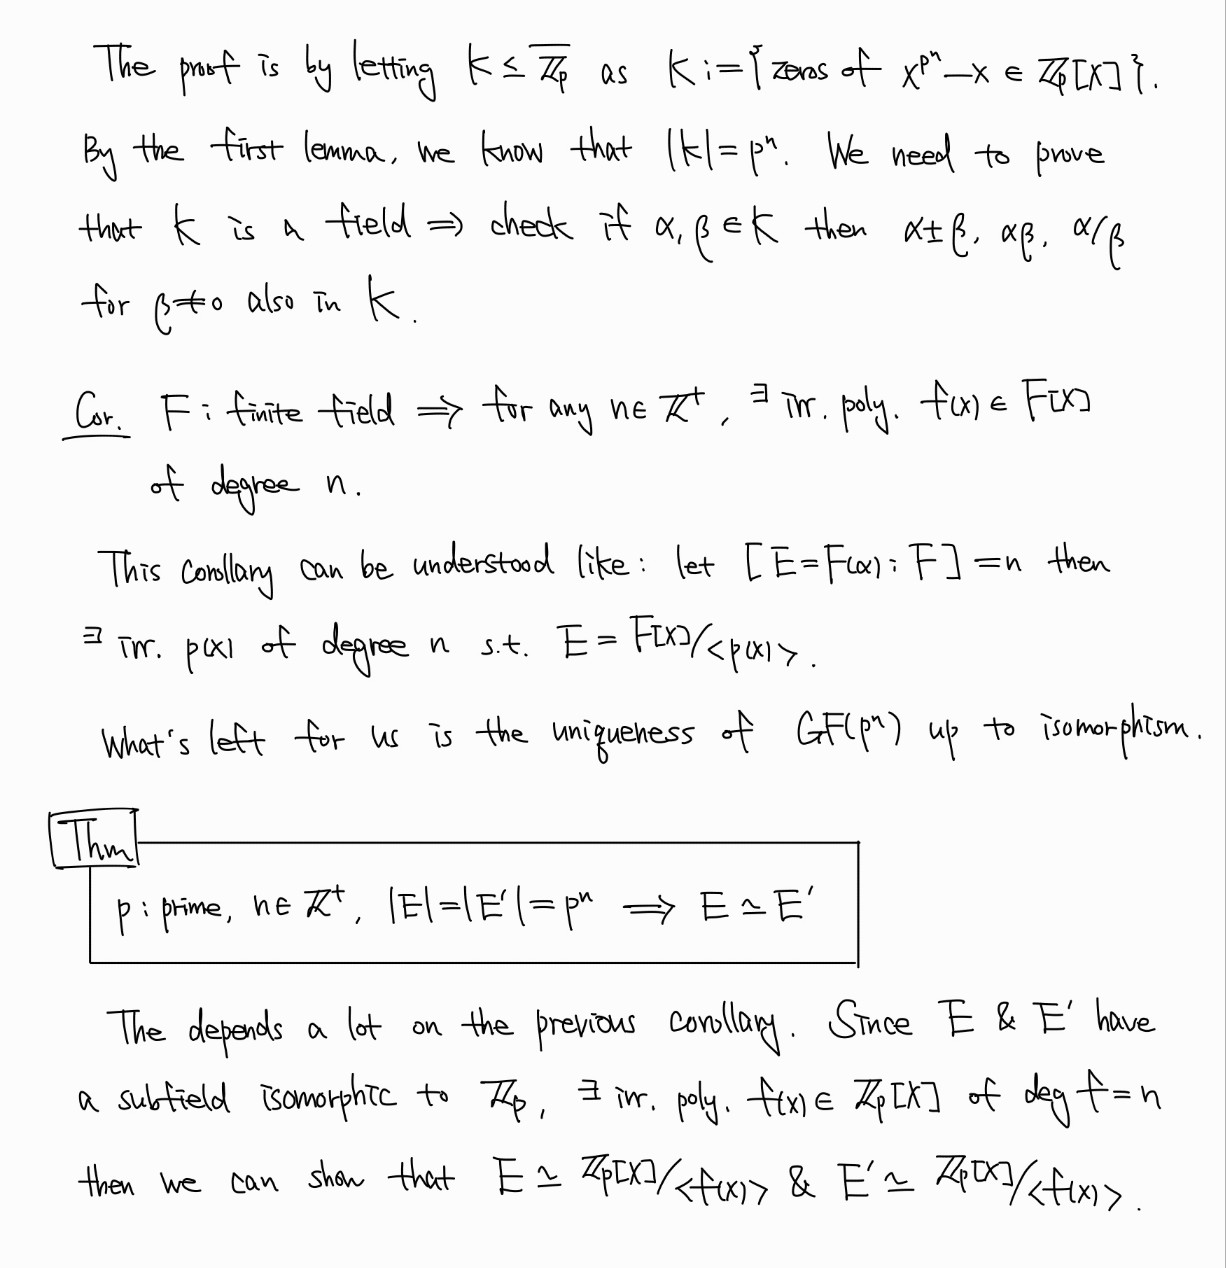 The proof is by letting K ≤ \overline{ℤ_p} as K := { zeros of x^{p^n} − x ∈ ℤ_p[x] }.
By the first lemma, we know that |K| = p^n. We need to prove
that K is a field ⇒ check if α, β ∈ K then α±β, αβ, α/β
for β≠0 also in K.
Cor. F : finite field ⇒ for any n ∈ ℤ⁺, ∃ irr. poly. f(x) ∈ F[x]
of degree n.
This corollary can be understood like : let [E = F(α) : F] = n then
∃ irr. p(x) of degree n s.t. E = F[x]/<p(x)>.
What's left for us is the uniqueness of GF(p^n) up to isomorphism.
Thm
p : prime, n ∈ ℤ⁺, |E| = |E'| = p^n ⇒ E ≃ E'
The depends a lot on the previous corollary. Since E & E' have
a subfield isomorphic to ℤ_p, ∃ irr. poly. f(x) ∈ ℤ_p[x] of deg f = n
then we can show that E ≃ ℤ_p[x]/<f(x)> & E' ≃ ℤ_p[x]/<f(x)>.